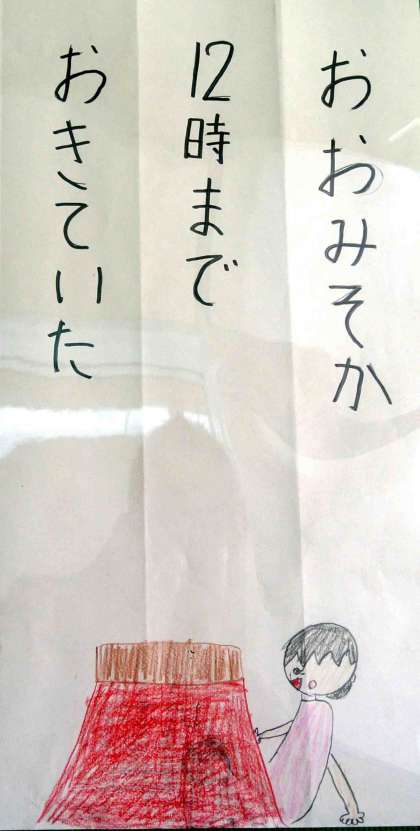 おおみそか
12時まで
おきていた